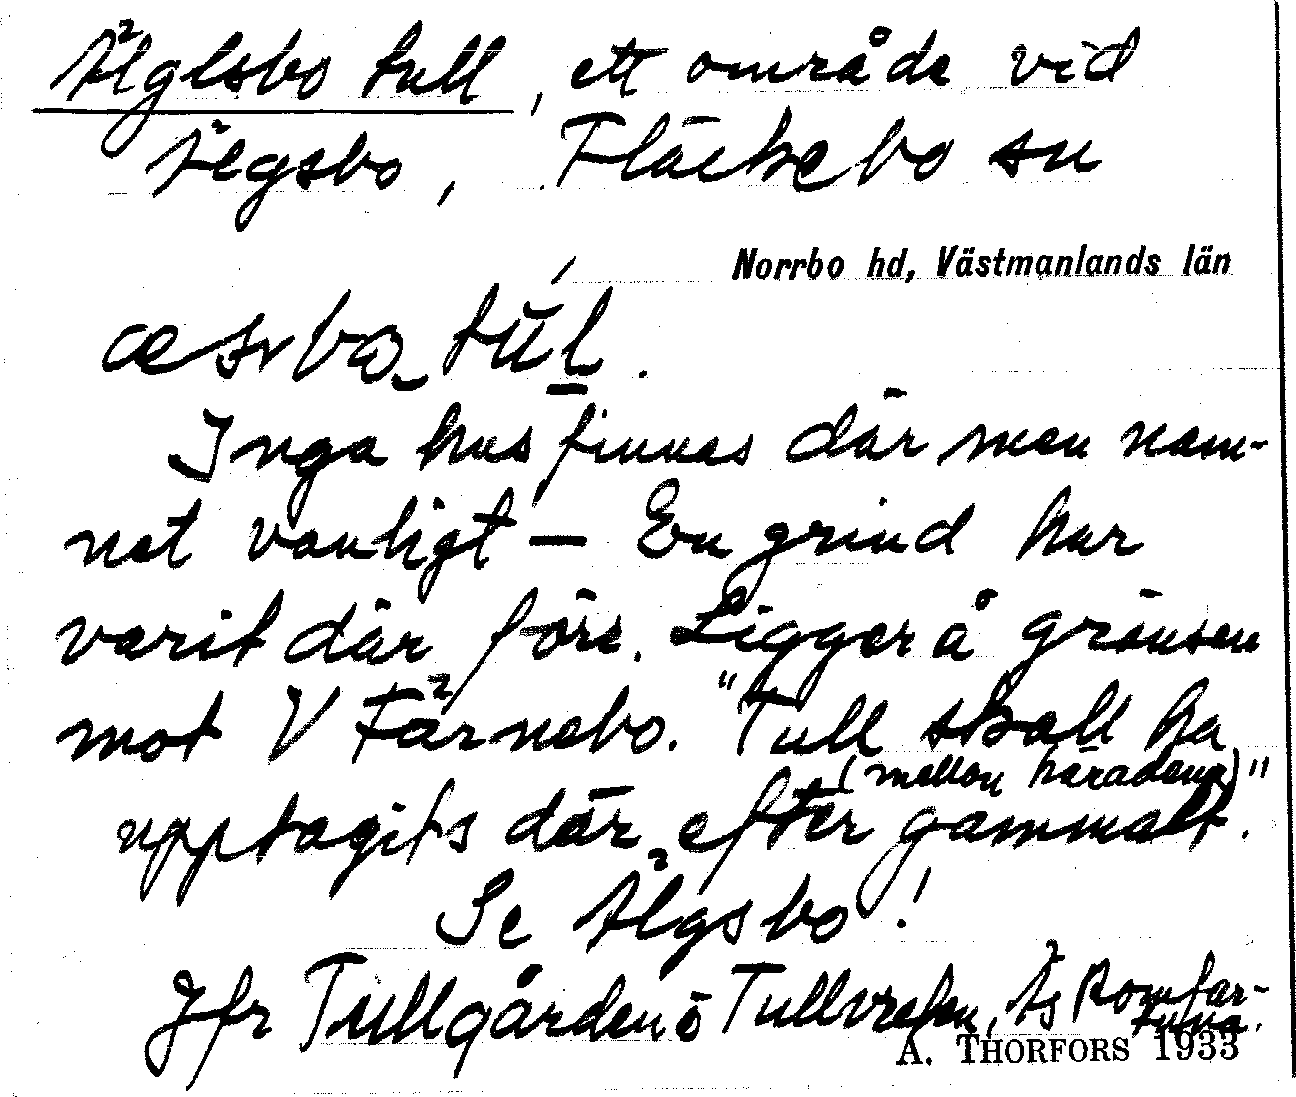 Älglsbo tull, ett område vid
Älgsbo, Fläckebo sn
Norrbo hd, Västmanlands län
Inga hus finnas där men nam-
net vanligt – En grind har
varit där förr. Ligger å gränsen
mot V Färnebo. "Tull skall ha
(mellan häradena)"
upptagits där efter gammalt.
Se Älgsbo!
Jfr Tullgården o Tullvreten, Ås Romfar-
tuna.
A. THORFORS 1933